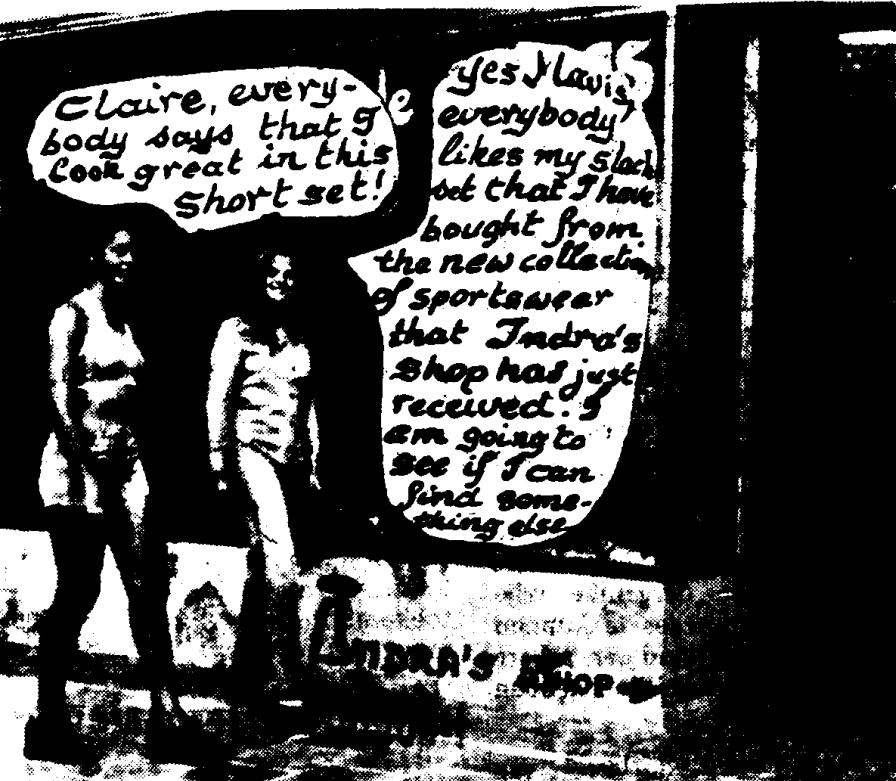 Claire, every-
body says that I
look great in this
Short set!
Yes Mavis,
everybody
likes my slack
set that I have
bought from
the new collection
of sportswear
that Indra's
Shop has just
received. I
am going to
see if I can
find some-
thing else
INDRA'S SHOP